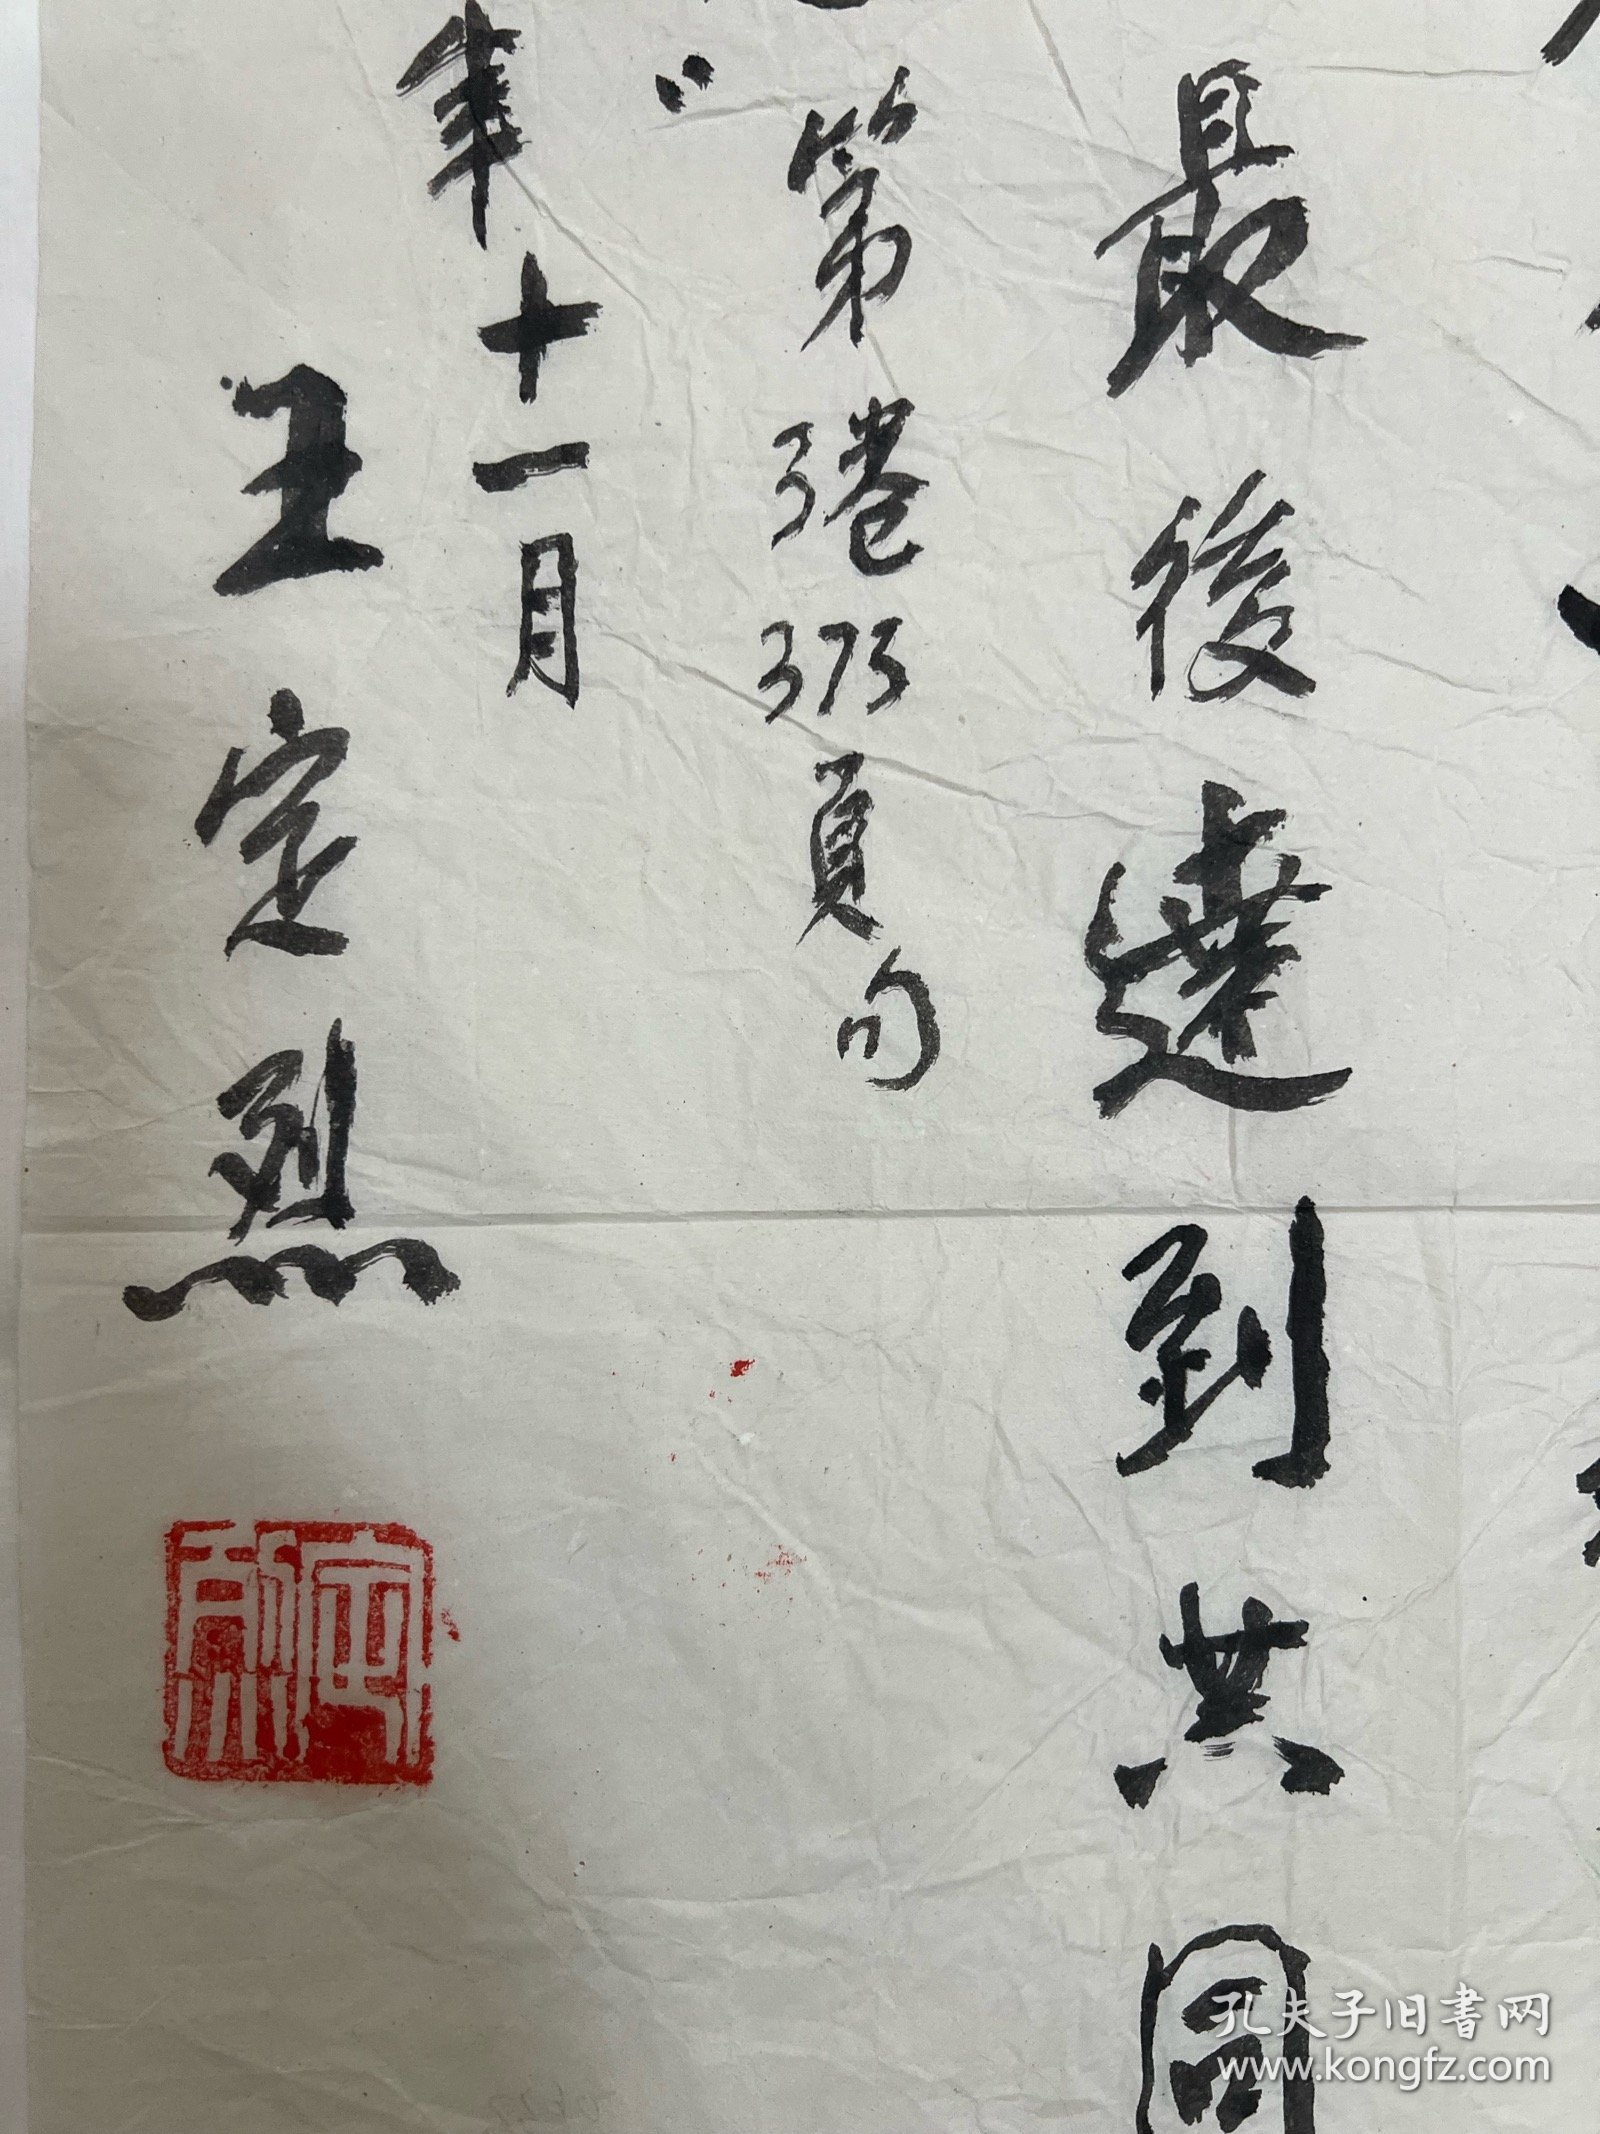 最後達到共同
第3卷373頁句
年十一月
王定烈
孔夫子旧书网
www.kongfz.com